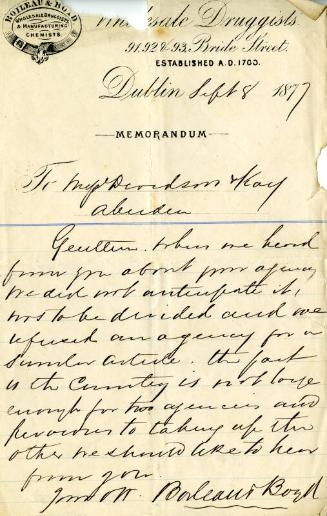 BOILEAU & BOYD
WHOLESALE DRUGGISTS
& MANUFACTURING
CHEMISTS
Wholesale Druggists.
91.92 & 93. Bride Street.
ESTABLISHED A.D. 1700.
Dublin Sept 8 1877
MEMORANDUM
To Messrs Davidson & Kay
Aberdeen
Gentlemen. When we heard
from you about your agency
we did not anticipate it
was to be divided and we
refused an agency for a
similar article. The fact
is the Country is not large
enough for two agencies and
previous to taking up the
other we should like to hear
from you
Boileau & Boyd